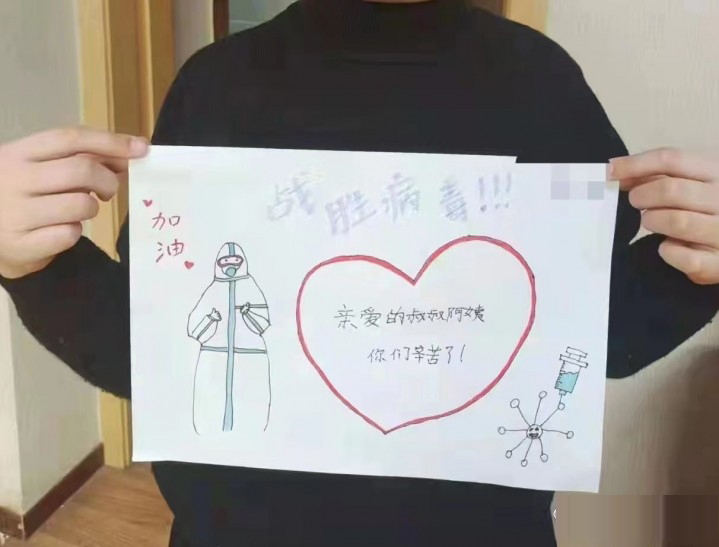 战胜病毒!!!
加
油
亲爱的叔叔阿姨
你们辛苦了!